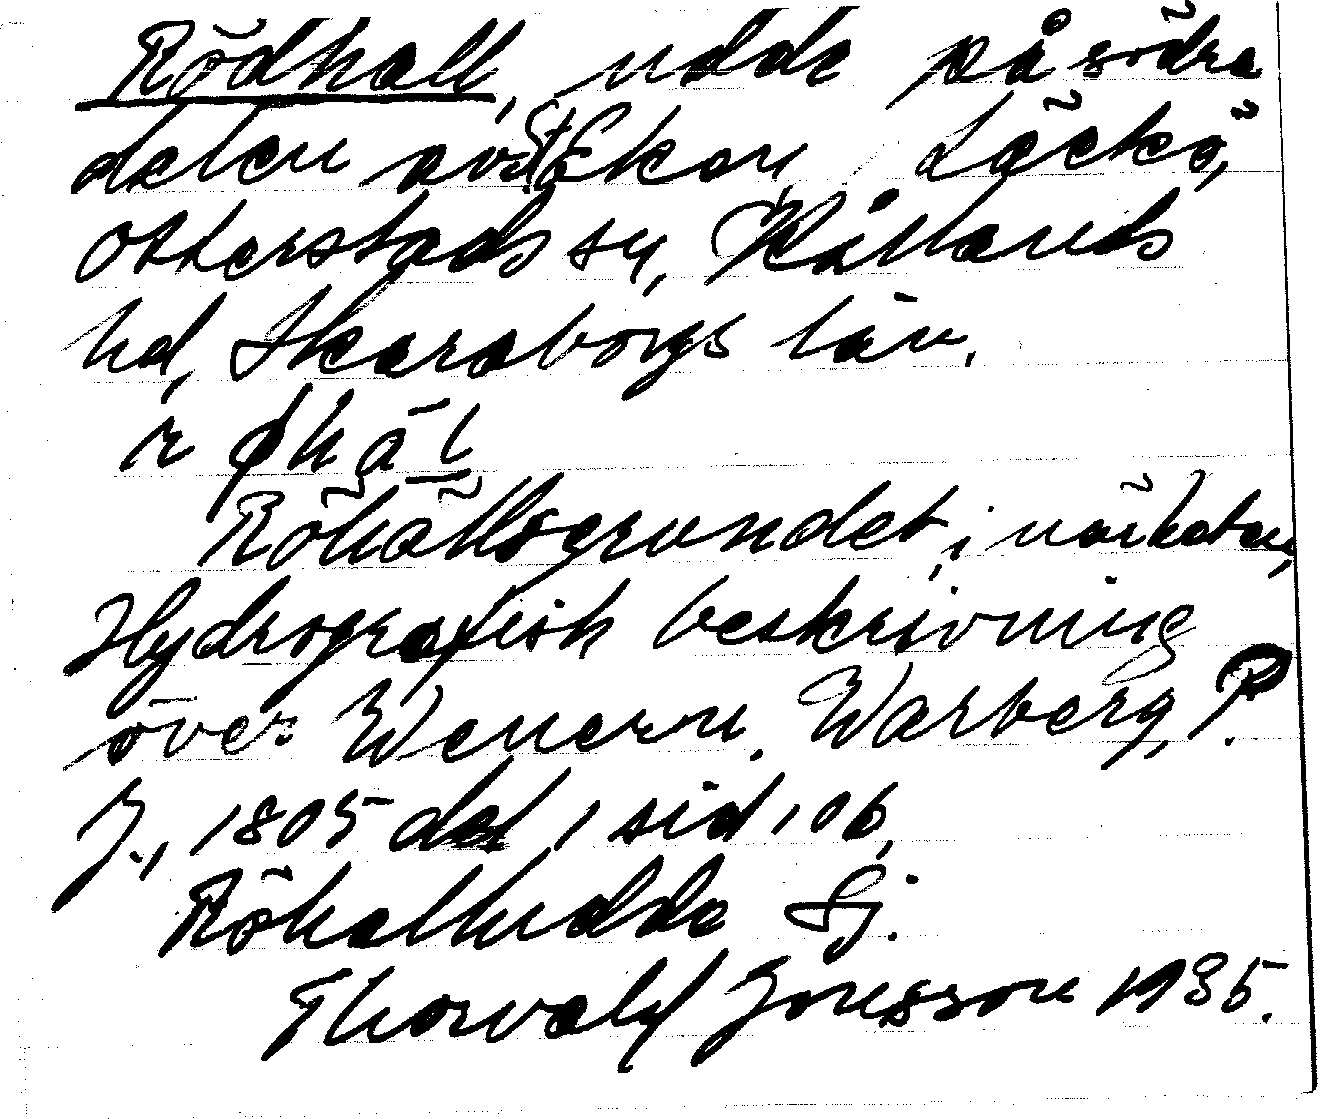 Rödhall, udde på södra
delen av St. Ekon, Läckö,
Otterstads sn, Kållands
hd, Skaraborgs län.
Röhällsgrundet, i närheten,
Hydrografisk beskrivning
över Wenern. Warberg, P.
J., 1805 del 1 sid 106,
Röhalludda Sj.
Thorvald Jonsson 1935.